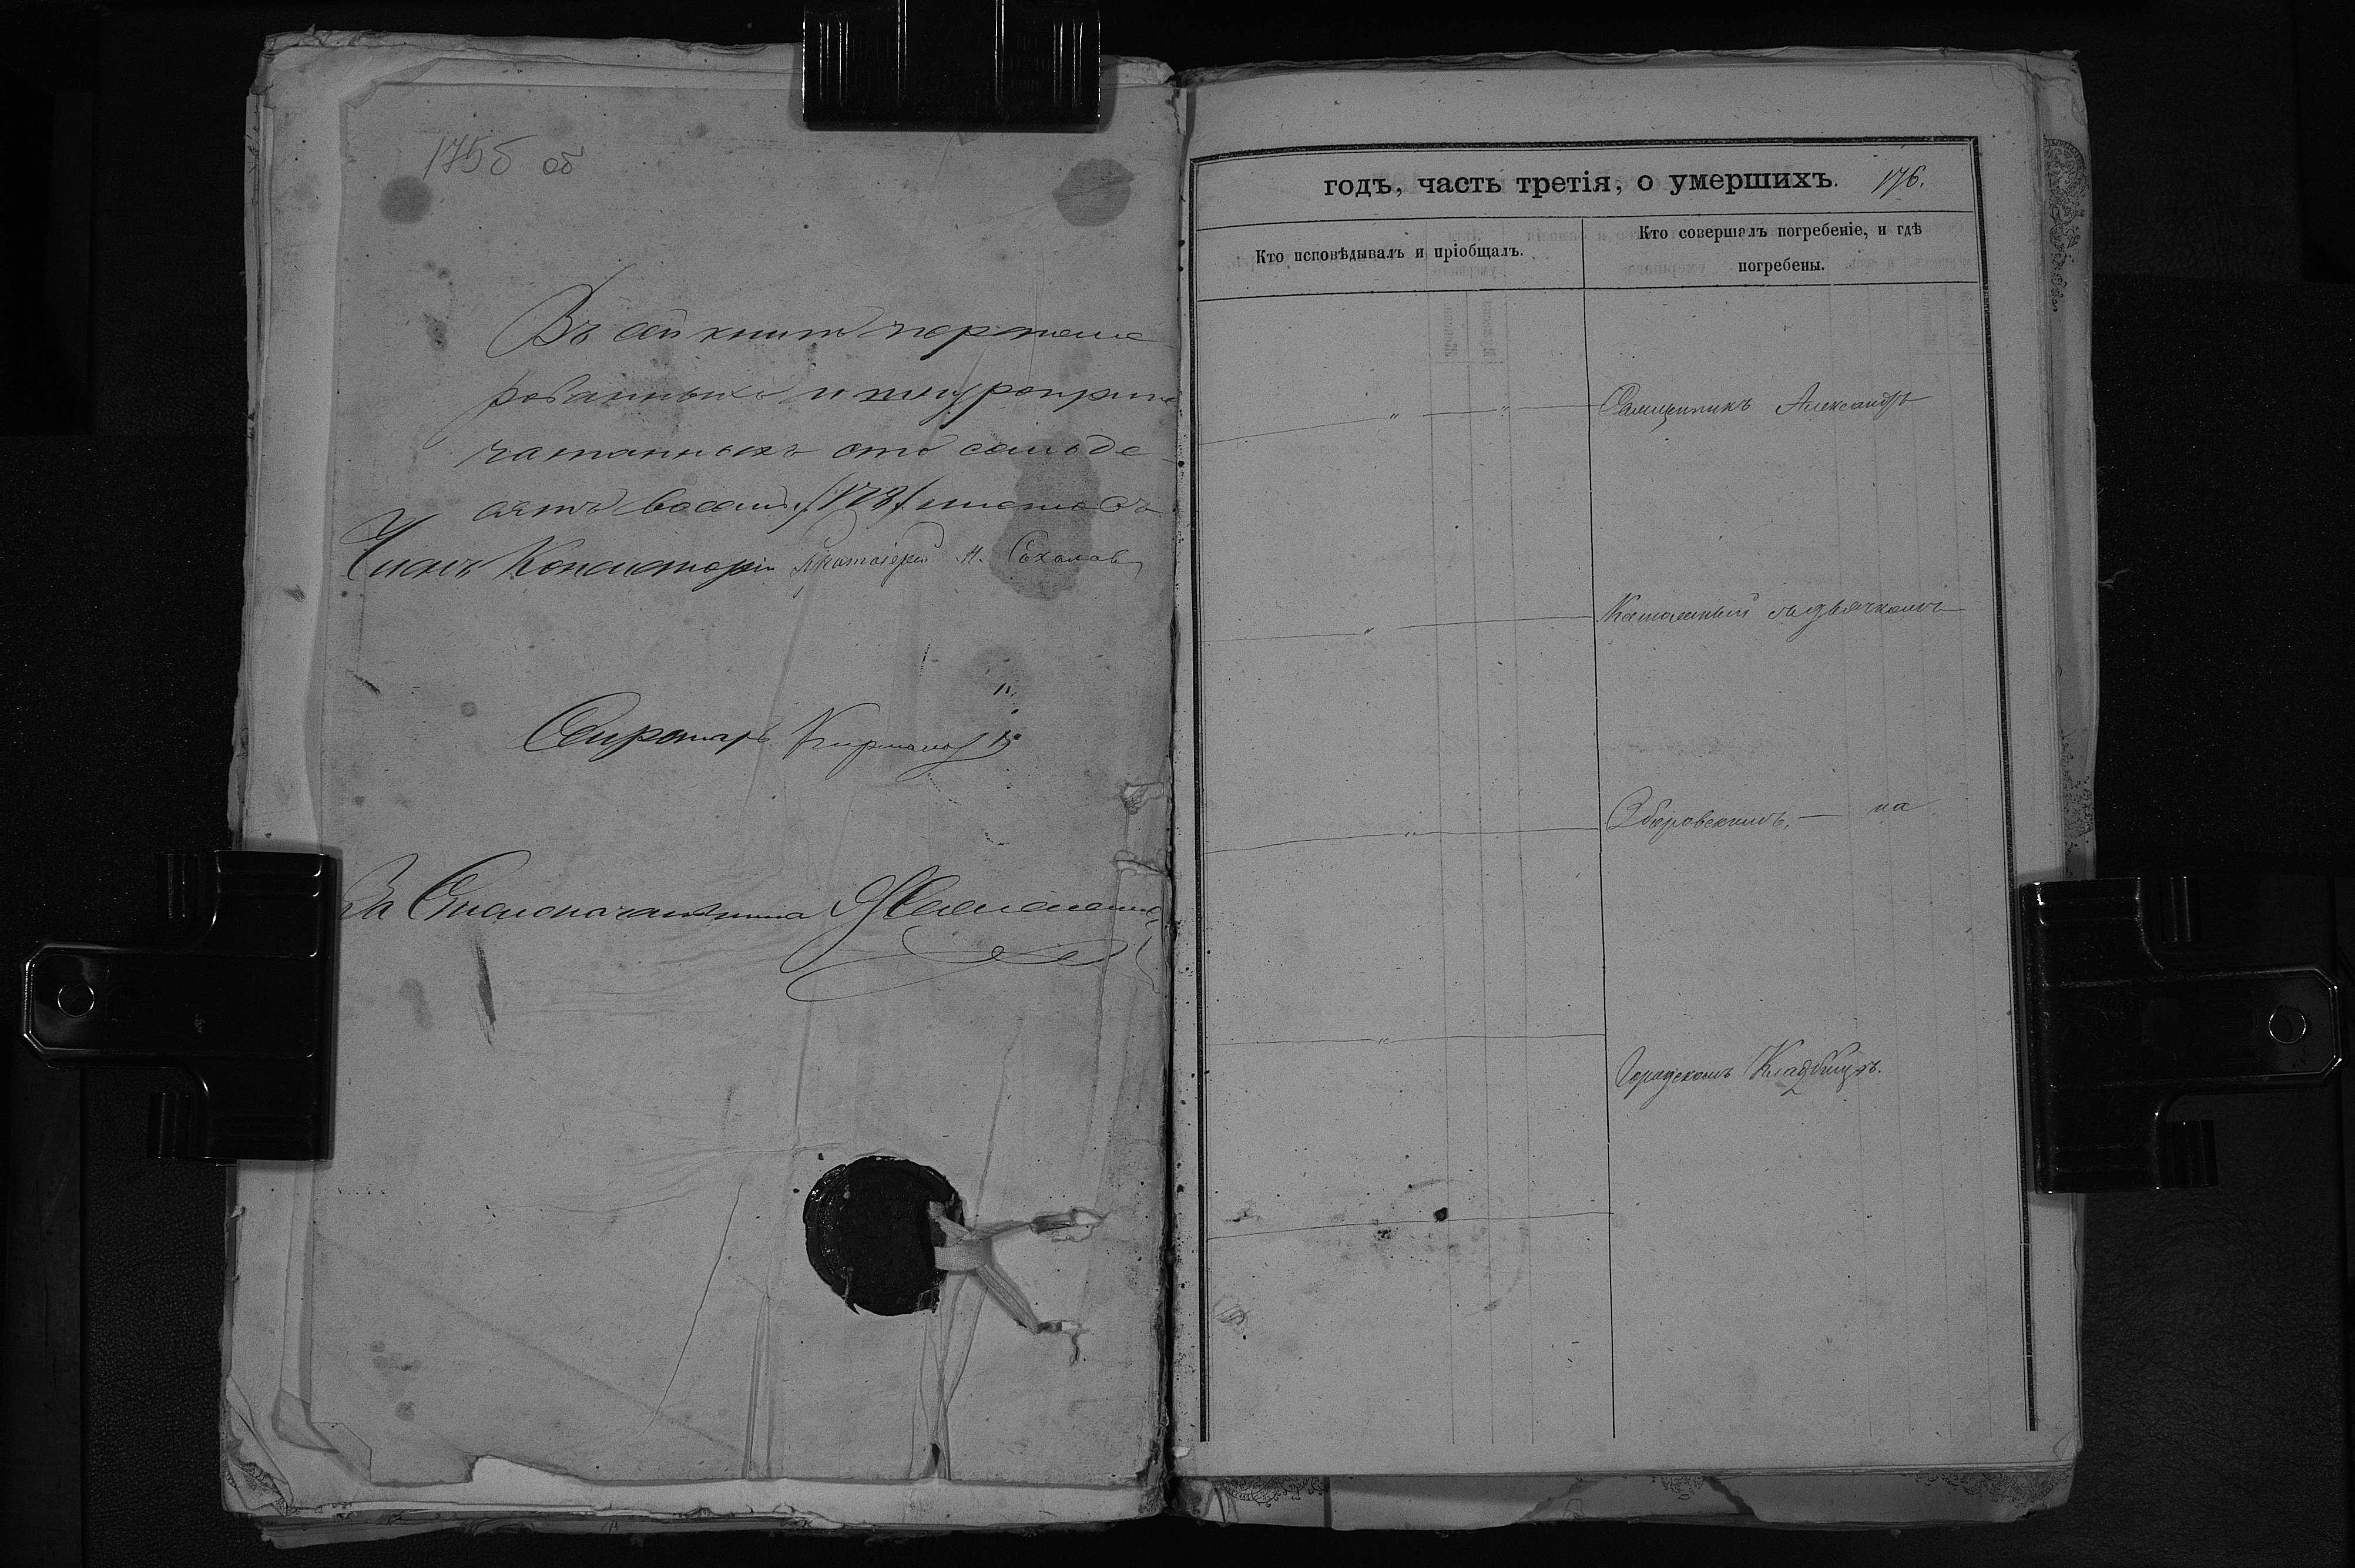 175б об
Въ сей книгѣ перенуме
рованныхъ и шнуропри
чатанныхъ сто семьде
сятъ восемь /178/ листовъ
Членъ Консисторіи Протоіерей Н. Соколовъ
Секретарь
За Столоначальника
годъ, часть третія, о умершихъ. 176.
Кто исповѣдывалъ и пріобщалъ.
Кто совершалъ погребеніе, и гдѣ
погребены.
„ „ Священникъ Александръ
„ съ дьячкомъ
„ Зборовскимъ, — на
„
Городскомъ Кладбищѣ.